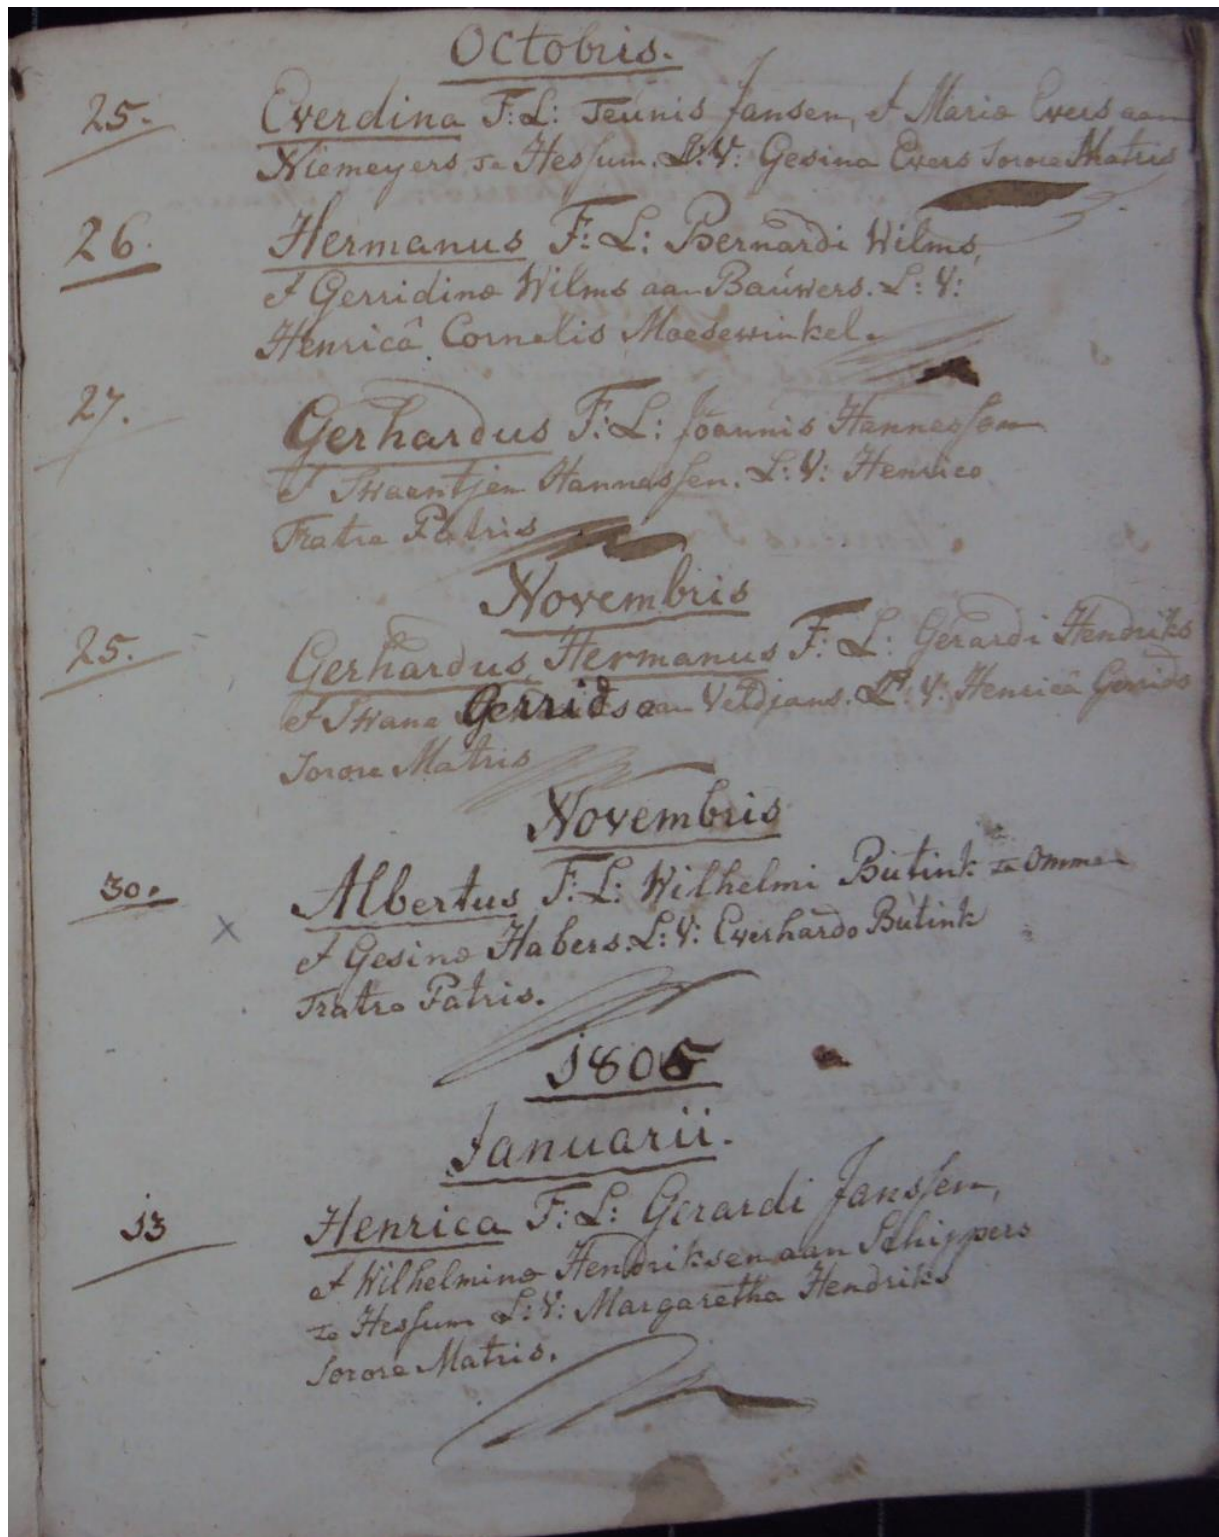 Octobris.
25. Everdina F: L: Teunis Jansen, et Maria Evers aan
Niemeyers te Hessum. L: V: Gesina Evers Sorore Matris
26. Hermanus F: L: Bernardi Wilms,
et Gerridina Wilms aan Bauwers. L: V:
Henricâ Cornelis Moesewinkel.
27. Gerhardus F: L: Joannis Hannessen
et Swaantjen Hannessen. L: V: Henrico
Fratre Patris
Novembris
25. Gerhardus Hermanus F: L: Gerardi Hendriks
et Swana Gerrids aan Veldjans. L: V: Henricâ Gerrids
Sorore Matris
Novembris
30. Albertus F: L: Wilhelmi Butink te Ommen
× et Gesina Habers. L: V: Everhardo Butink
Fratre Patris.
1805
Januarii.
13 Henrica F: L: Gerardi Janssen,
et Wilhelmina Hendriksen aan Schippers
te Hessum L: V: Margaretha Hendriks
Sorore Matris.